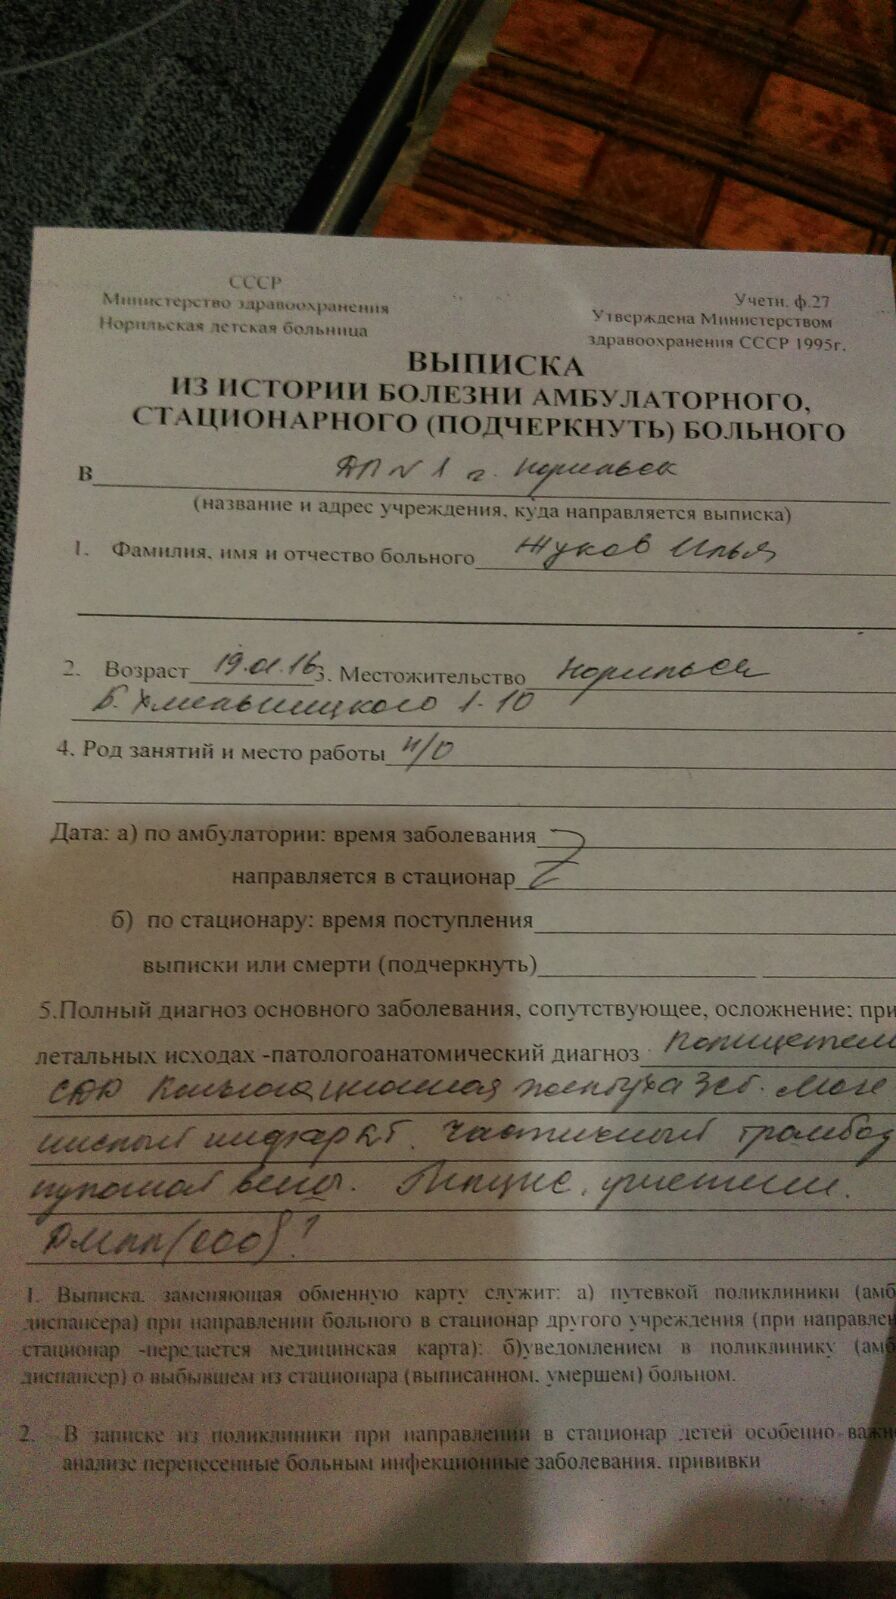 СССР
Министерство здравоохранения
Норильская детская больница
Учетн. ф.27
Утверждена Министерством
здравоохранения СССР 1995г.
ВЫПИСКА
ИЗ ИСТОРИИ БОЛЕЗНИ АМБУЛАТОРНОГО,
СТАЦИОНАРНОГО (ПОДЧЕРКНУТЬ) БОЛЬНОГО
В ДП № 1 г. Норильск
(название и адрес учреждения, куда направляется выписка)
1. Фамилия, имя и отчество больного Жуков Илья
2. Возраст 19.01.16 3. Местожительство Норильск
Б. Хмельницкого 1-10
4. Род занятий и место работы н/о
Дата: а) по амбулатории: время заболевания
направляется в стационар
б) по стационару: время поступления
выписки или смерти (подчеркнуть)
5.Полный диагноз основного заболевания, сопутствующее, осложнение: при
летальных исходах -патологоанатомический диагноз
желтуха
инфаркт. Частичный тромбоз
пупочной вены.
ДМПП (ООО)?
1. Выписка, заменяющая обменную карту служит: а) путевкой поликлиники (амб
диспансера) при направлении больного в стационар другого учреждения (при направлен
стационар -передается медицинская карта): б)уведомлением в поликлинику (амб
диспансер) о выбывшем из стационара (выписанном, умершем) больном.
2. В записке из поликлиники при направлении в стационар детей особенно важно
анализе перенесенные больным инфекционные заболевания, прививки